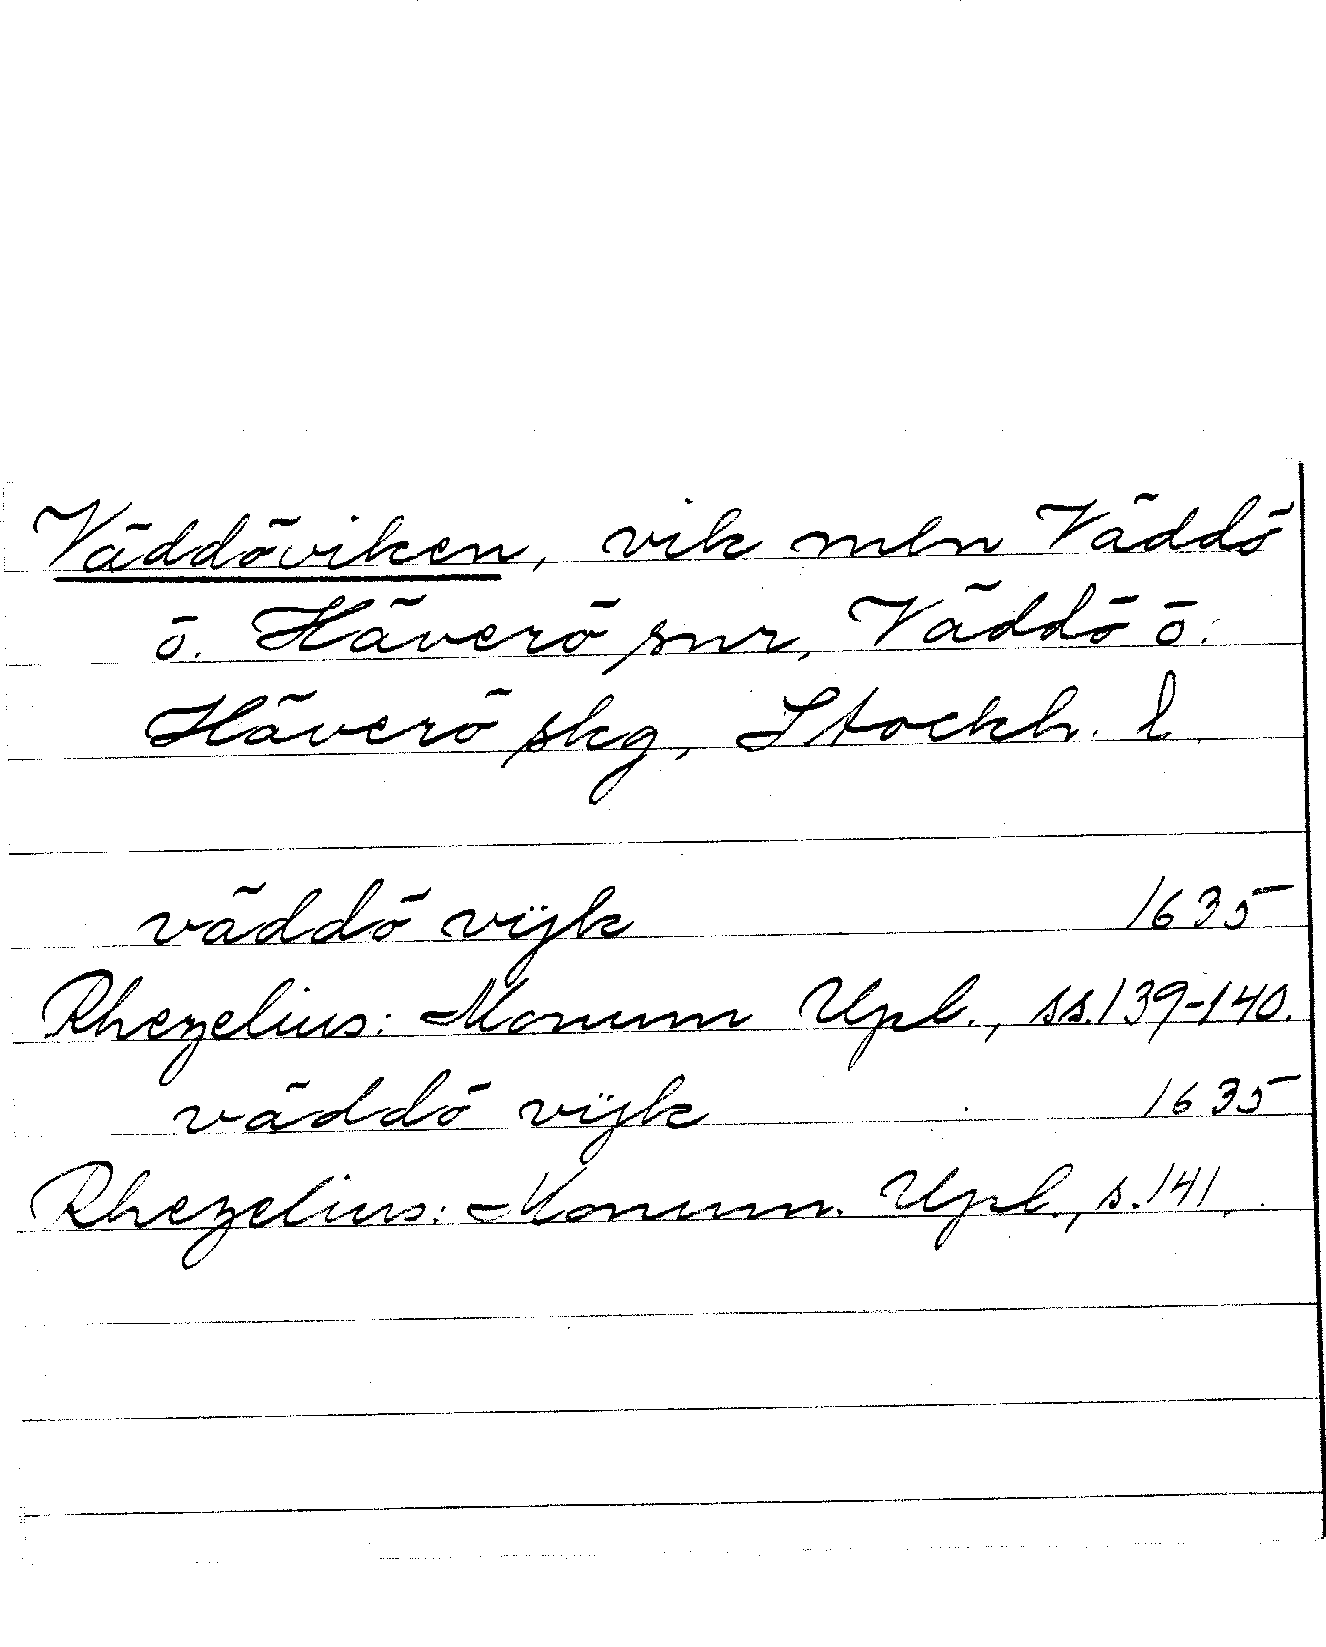 Väddöviken, vik mln Väddö
o. Häverö snr, Väddö o.
Häverö skg, Stockh. l.
väddö vijk 1635
Rhezelius: Monum Upl., ss. 139-140.
väddö vijk 1635
Rhezelius: Monum. Upl., s. 141.